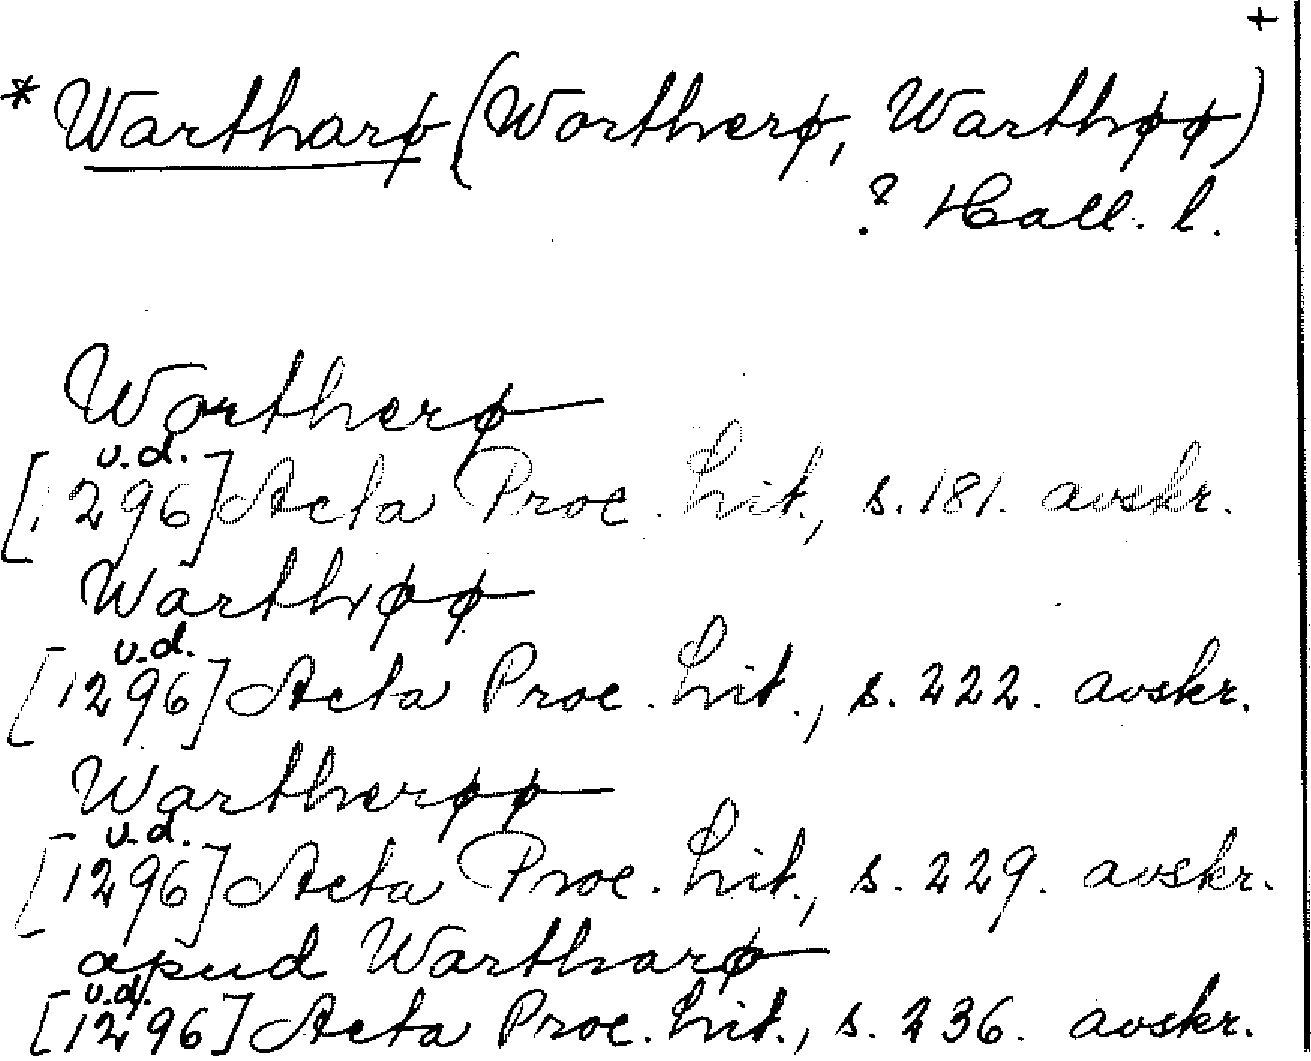 +
* Wartharø (Wortherø, Warthøø)
? Hall. l.
Wortherø
u.d.
[1296] Acta Proc. Lit., s. 181. avskr.
Warthøø
u.d.
[1296] Acta Proc. Lit., s. 222. avskr.
Wartherøø
u.d.
[1296] Acta Proc. Lit., s. 229. avskr.
apud Wartharø
u.d.
[1296] Acta Proc. Lit., s. 236. avskr.